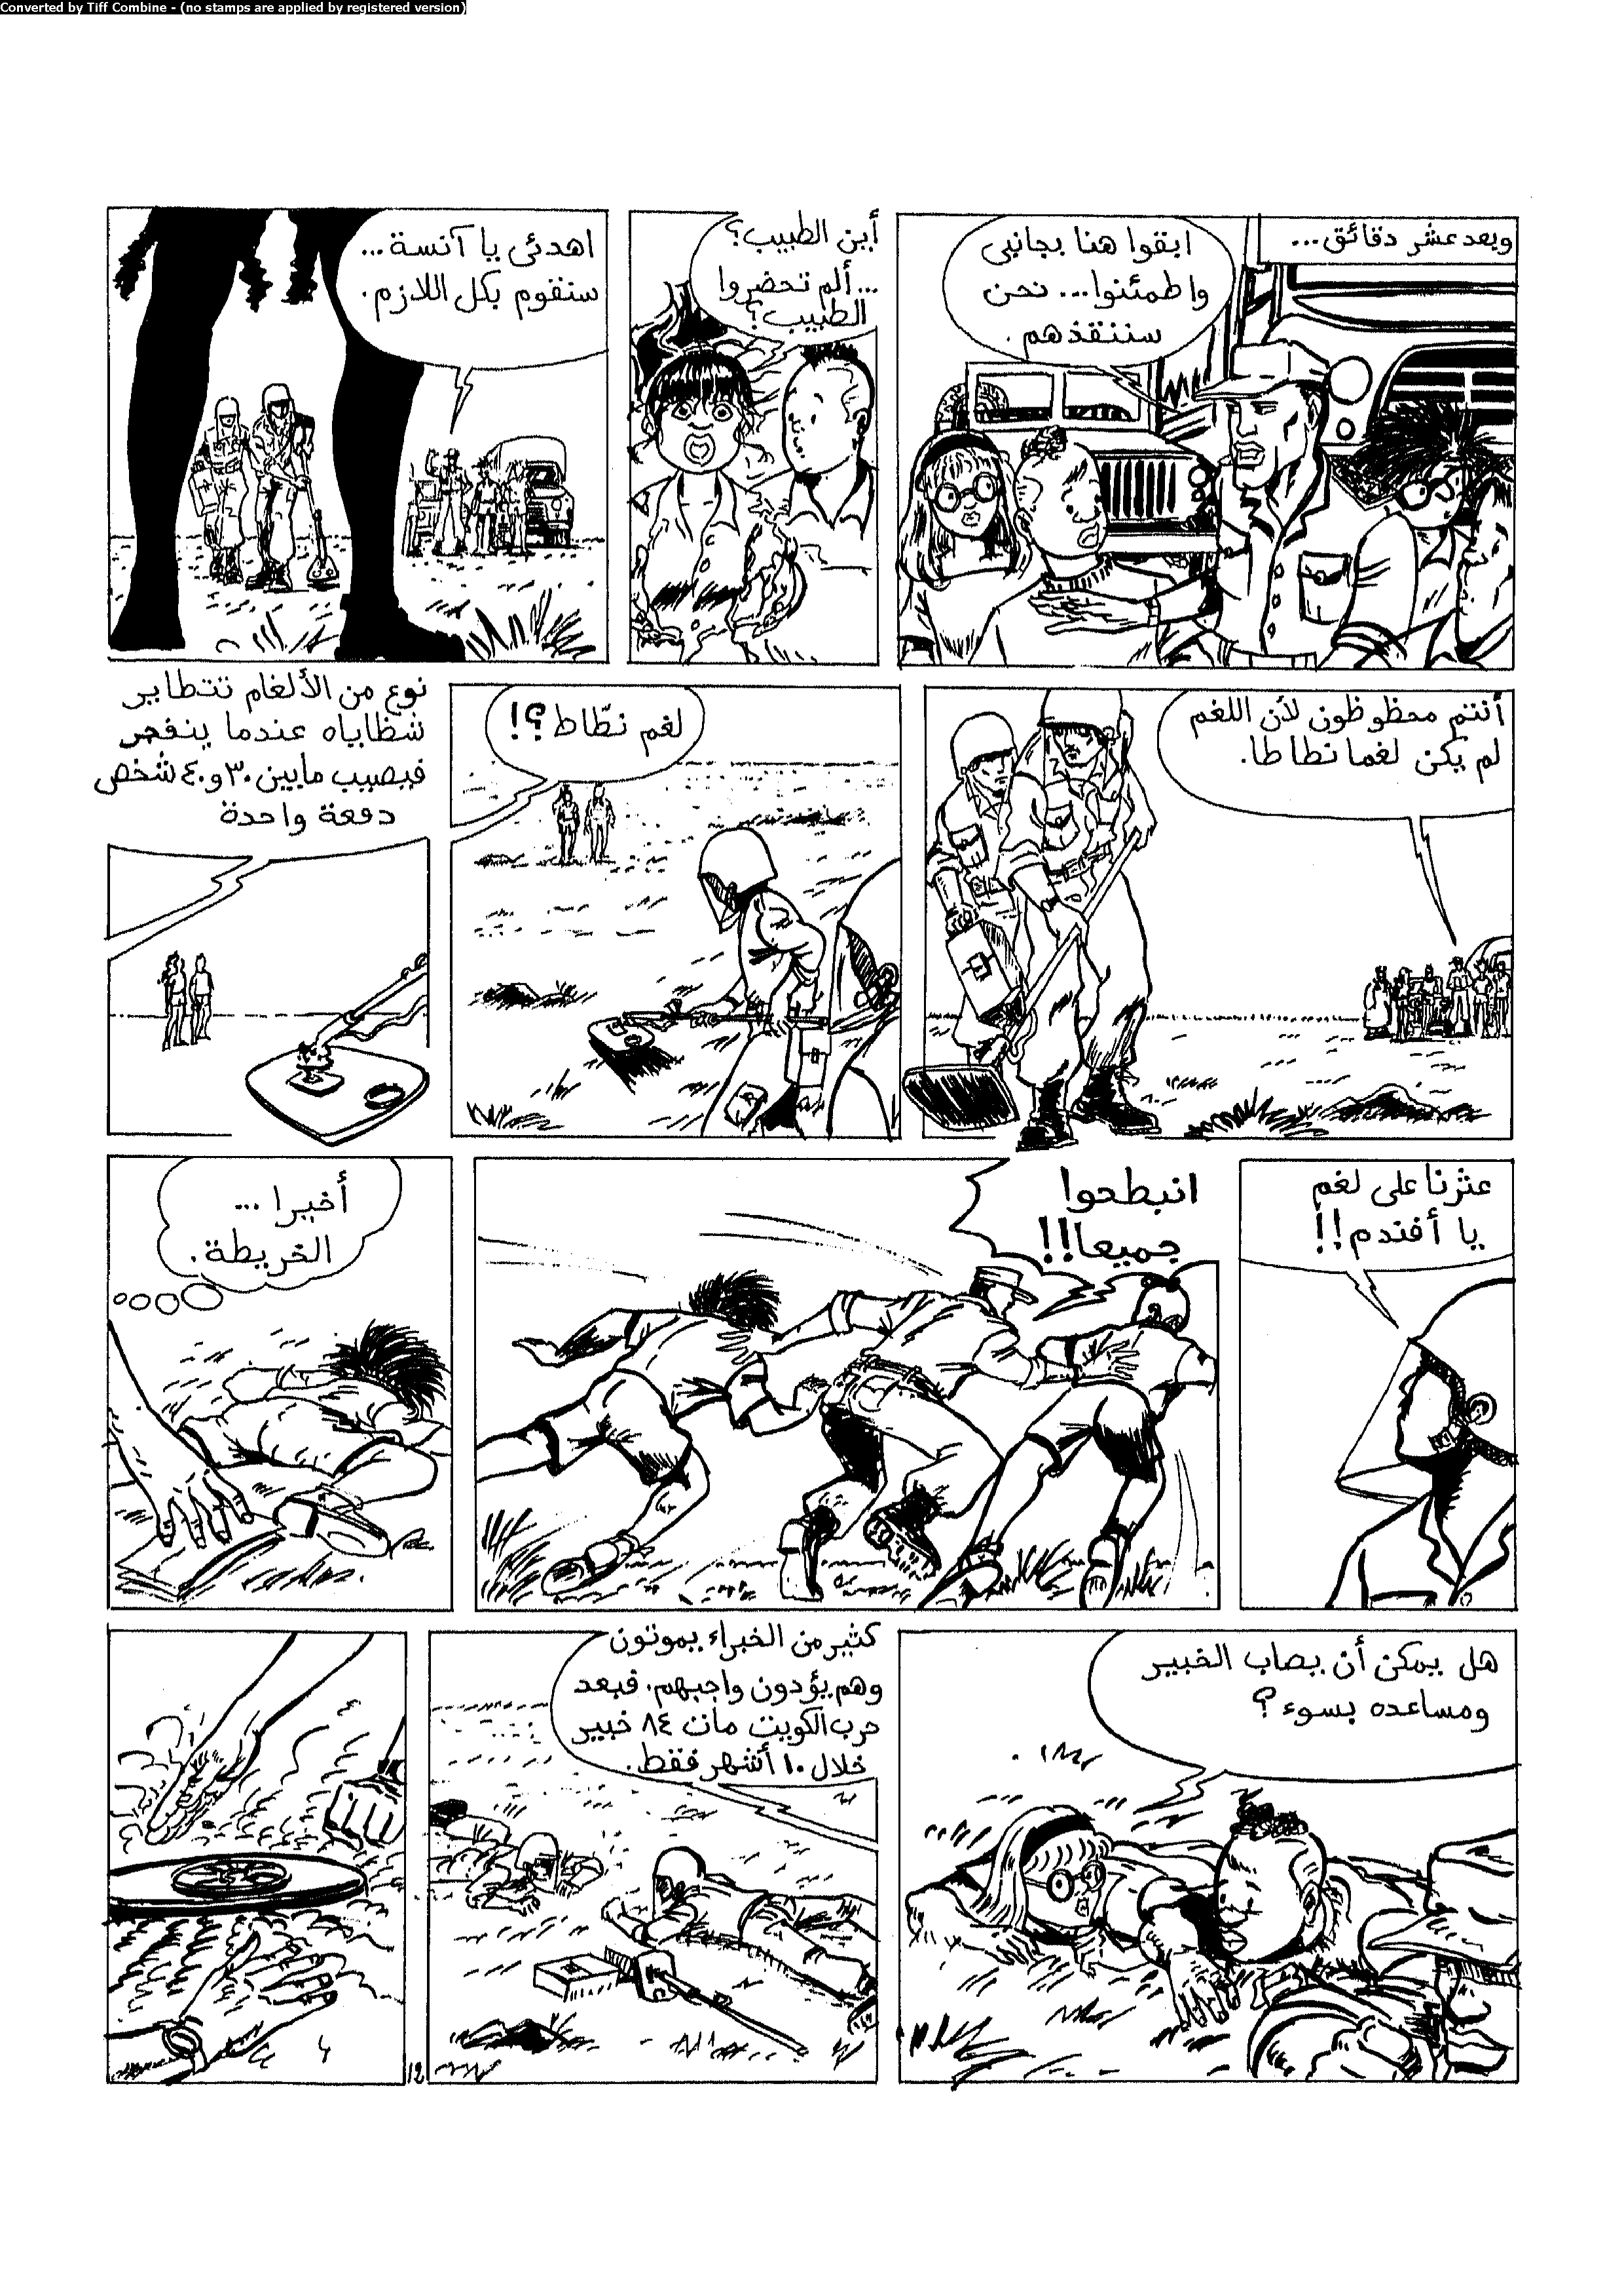 Converted by Tiff Combine - (no stamps are applied by registered version)
وبعد عشر دقائق...
ابقوا هنا بجانبى
واطمئنوا... نحن
سننقذهم.
أين الطبيب؟
...ألم تحضروا
الطبيب؟
اهدئى يا آنسة...
سنقوم بكل اللازم.
أنتم محظوظون لأن اللغم
لم يكن لغما نطاطا.
لغم نطّاط؟!
نوع من الألغام تتطاير
شظاياه عندما ينفجر
فيصيب مابين ٣٠ و٤٠ شخص
دفعة واحدة
عثرنا على لغم
يا أفندم!!
انبطحوا
جميعا!!
أخيرا ...
الخريطة.
هل يمكن أن يصاب الخبير
ومساعده بسوء؟
كثير من الخبراء يموتون
وهم يؤدون واجبهم. فبعد
حرب الكويت مات ٨٤ خبير
خلال ١٠ أشهر فقط.